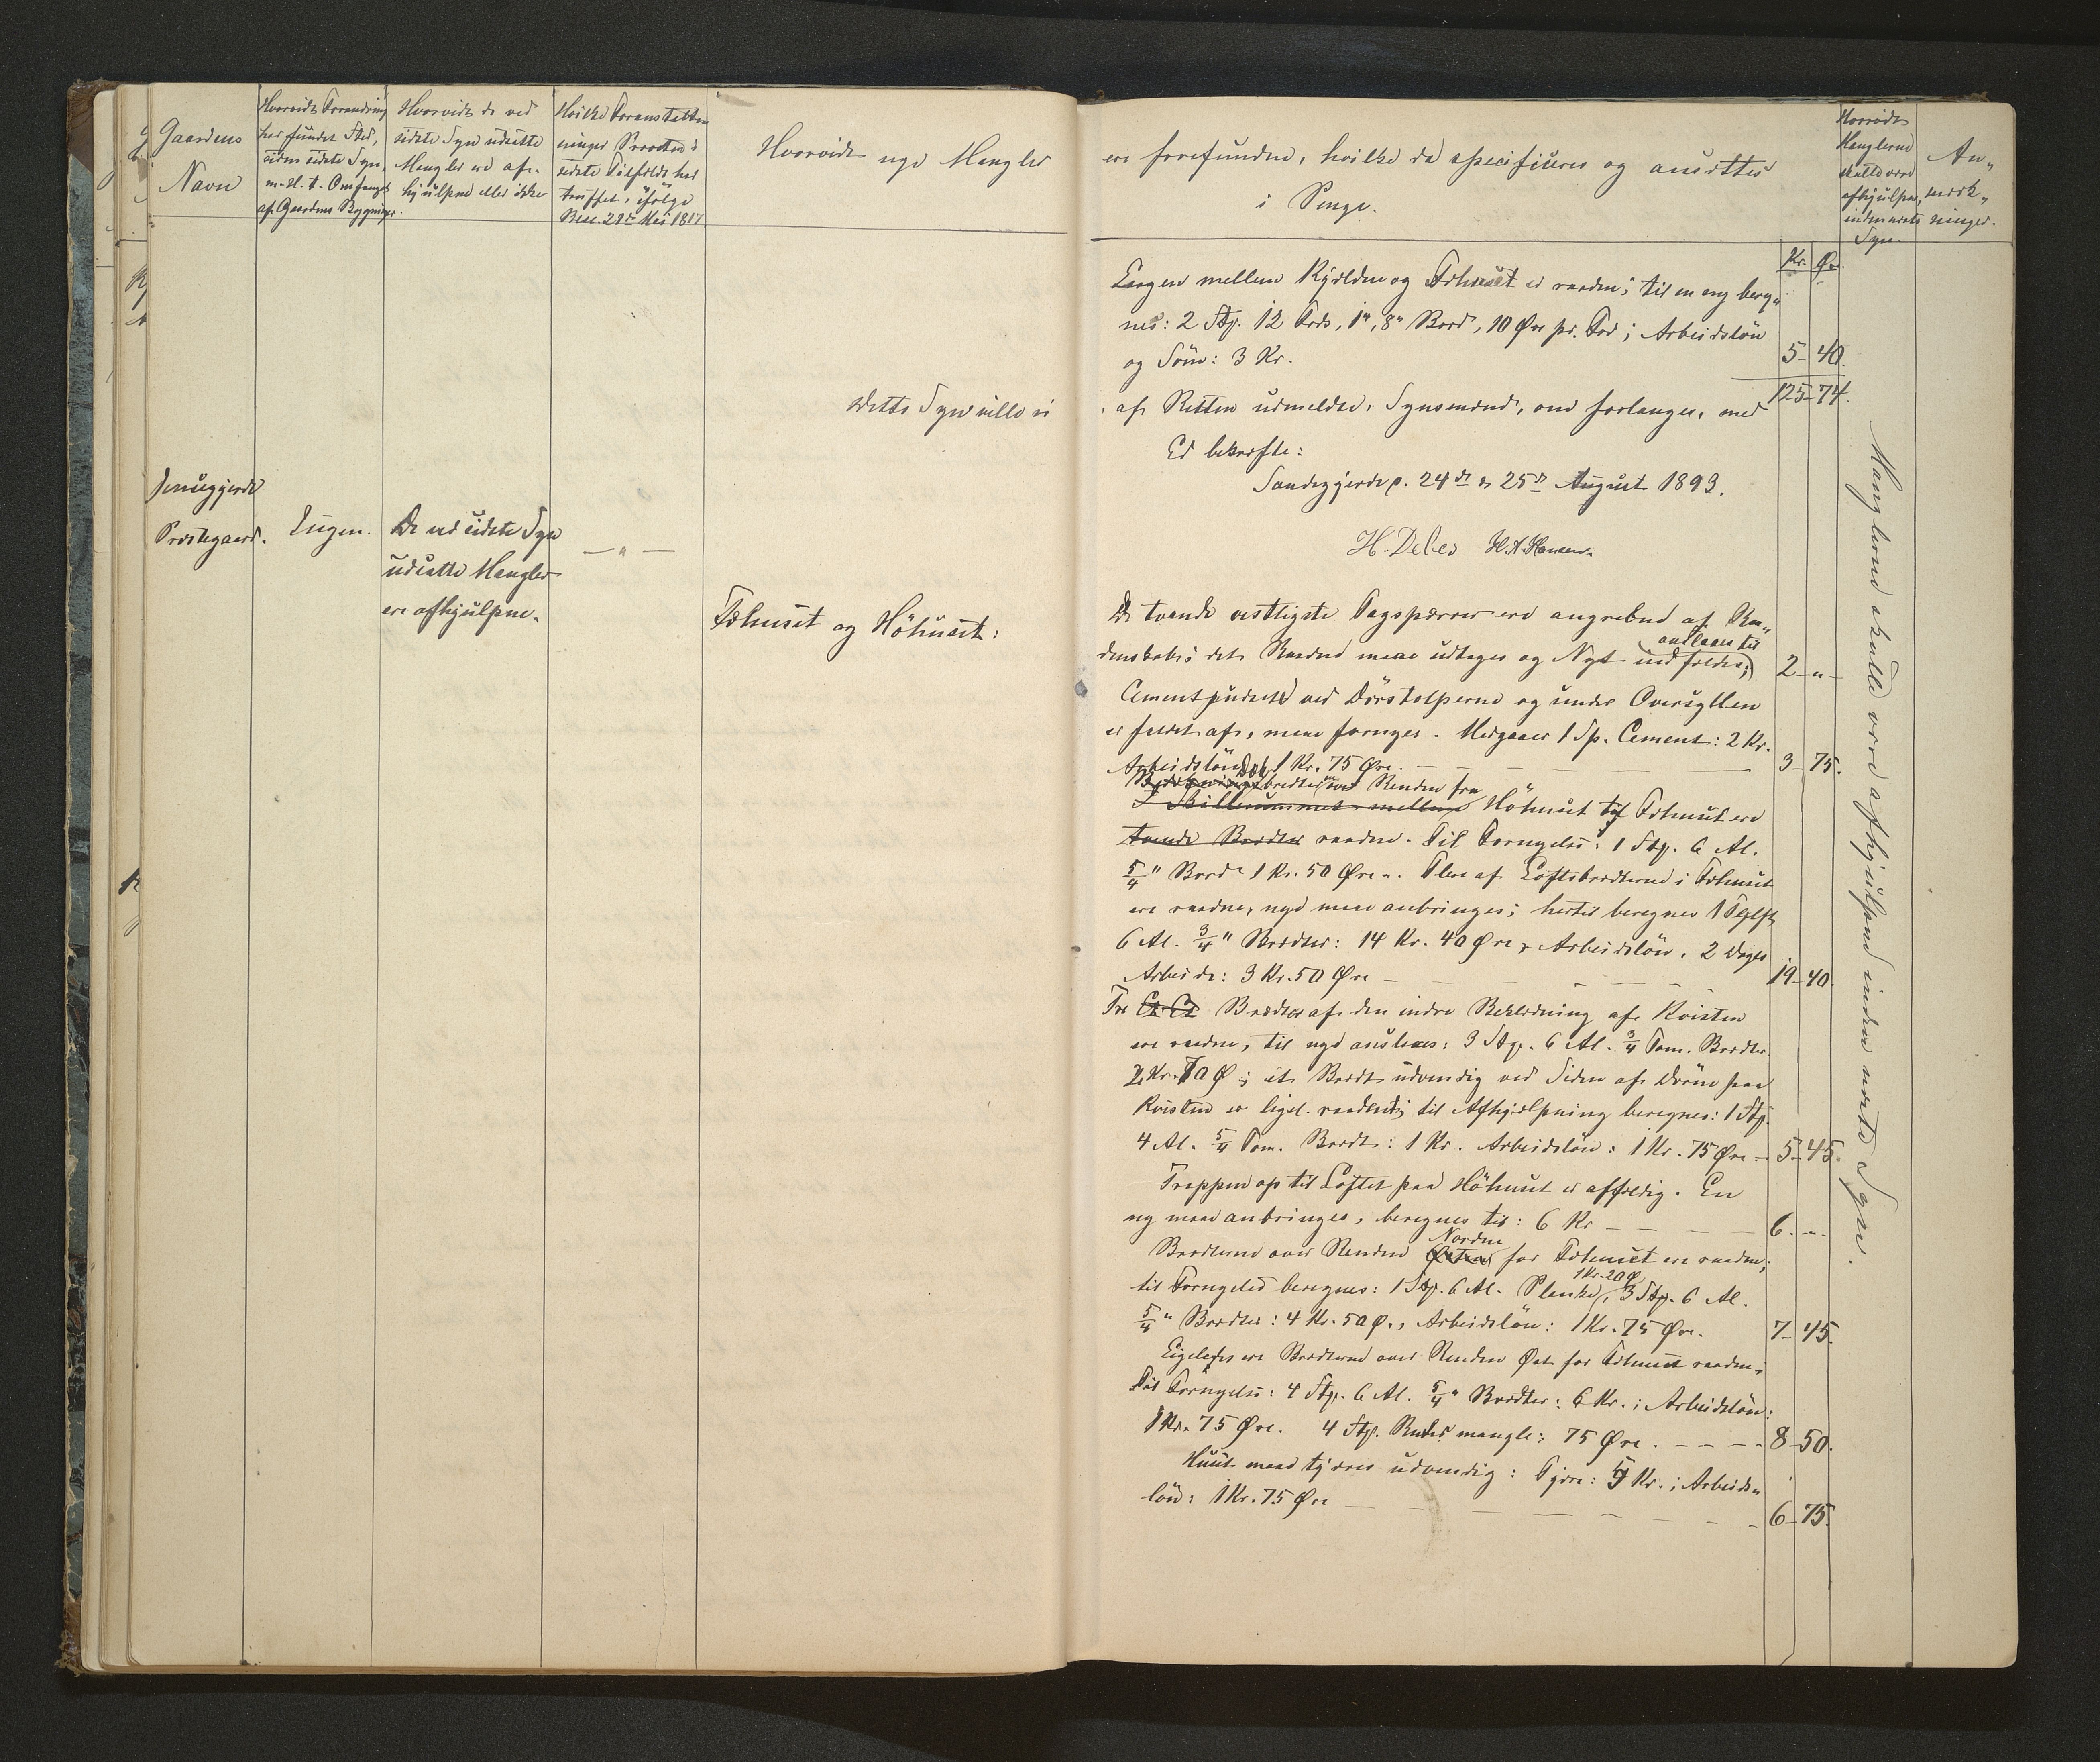 Gaardens
Navn
Hvorvidt Forandring
har fundet Sted,
siden sidste Syn,
m. H. t. Omfanget
af Gaardens Bygninger.
Hvorvidt de ved
sidste Syn udsatte
Mangler ere af-
hjulpne eller ikke
Hvilke Foranstalt-
ninger Provsten i
sidste Tilfælde har
truffet, ifølge
Resc. 28de Mai 1817
Hvorvidt nye Mangler
ere forefundne, hvilke da specificeres og ansættes
i Penge.
Hvorvidt
Manglerne
skulle være
afhjulpne,
inden næste
Syn.
An-
mærk-
ninger.
Kr. Ør.
Lugen mellem Kjælderen og Fæhuset er raaden; til en ny bereg-
nes: 2 Stk. 12 Fods, 1", 8" Bord, 10 Øre pr. Fod; Arbeidsløn
og Søm: 3 Kr. 5 - 40.
125 - 74.
Dette Syn ville vi
af Retten udmeldte Synsmænd, om forlanges, med
Ed bekræfte:
Sandegjerde p. 24de & 25de August 1893.
H. Debes H. A. Hansen.
Præstegaard.
Ingen.
De ved sidste Syn
udsatte Mangler
ere afhjulpne.
— " —
Fæhuset og Höhuset:
De tvende vestligste Tagspærrer ere angrebne af Raa-
denskab; det Raadne maae udtages og Nyt indfældes; 2 - " -
Cementpudset ved Dörstolperne og under Oversyllen
er faldet af, maae fornyes. Medgaaer 1 Sp. Cement: 2 Kr.
Arbeidslön 1 Kr. 75 Øre. 3 - 75.
Renden fra
I Skillerummet mellem Höhuset til Fæhuset ere
tvende Brædter raadne. Til Fornyelse: 1 Stk. 6 Al.
5/4" Bord 1 Kr. 50 Øre. Flere af Loftsbrædterne i Fæhuset
ere raadne, nye maae anbringes; hertil beregnes 1 Tylft
6 Al. 3/4" Brædter: 14 Kr. 40 Øre, Arbeidslön, 2 Dages
Arbeide: 3 Kr. 50 Øre 19 - 40.
Tre Brædter af den indre Beklædning af Kvisten
ere raadne, til nye ansættes: 3 Stk. 6 Al. 3/4 Tom. Brædter
2 Kr. 70 Ø; et Brædt udvendig ved Siden af Dören paa
Kvisten er ligel. raaden; til Afhjælpning beregnes: 1 Stk.
4 Al. 5/4 Tom. Brædt: 1 Kr. Arbeidslön: 1 Kr. 75 Øre — 5 - 45.
Trappen op til Loftet paa Höhuset er affældig. En
ny maae anbringes, beregnes til: 6 Kr 6. - " -
Norden
Brædterne over Renden Østen for Fæhuset ere raadne;
1 Kr. 20 Ø
til Fornyelse beregnes: 1 Stk. 6 Al. Planke, 3 Stk. 6 Al.
5/4" Brædter: 4 Kr. 50 Ø., Arbeidslön: 1 Kr. 75 Øre. 7 - 45.
Ligeledes ere Brædterne over Renden Øst for Fæhuset raadne;
Til Fornyelse: 4 Stk. 6 Al. 5/4" Brædter: 6 Kr.; Arbeidslön:
1 Kr. 75 Øre. 4 Stk. Ruder mangle: 75 Øre. 8 - 50.
Huset maae tjæres udvendig: Tjære: 5 Kr.; Arbeids-
lön: 1 Kr. 75 Øre 6 - 75.
Manglerne skulle være afhjulpne inden næste Syn.